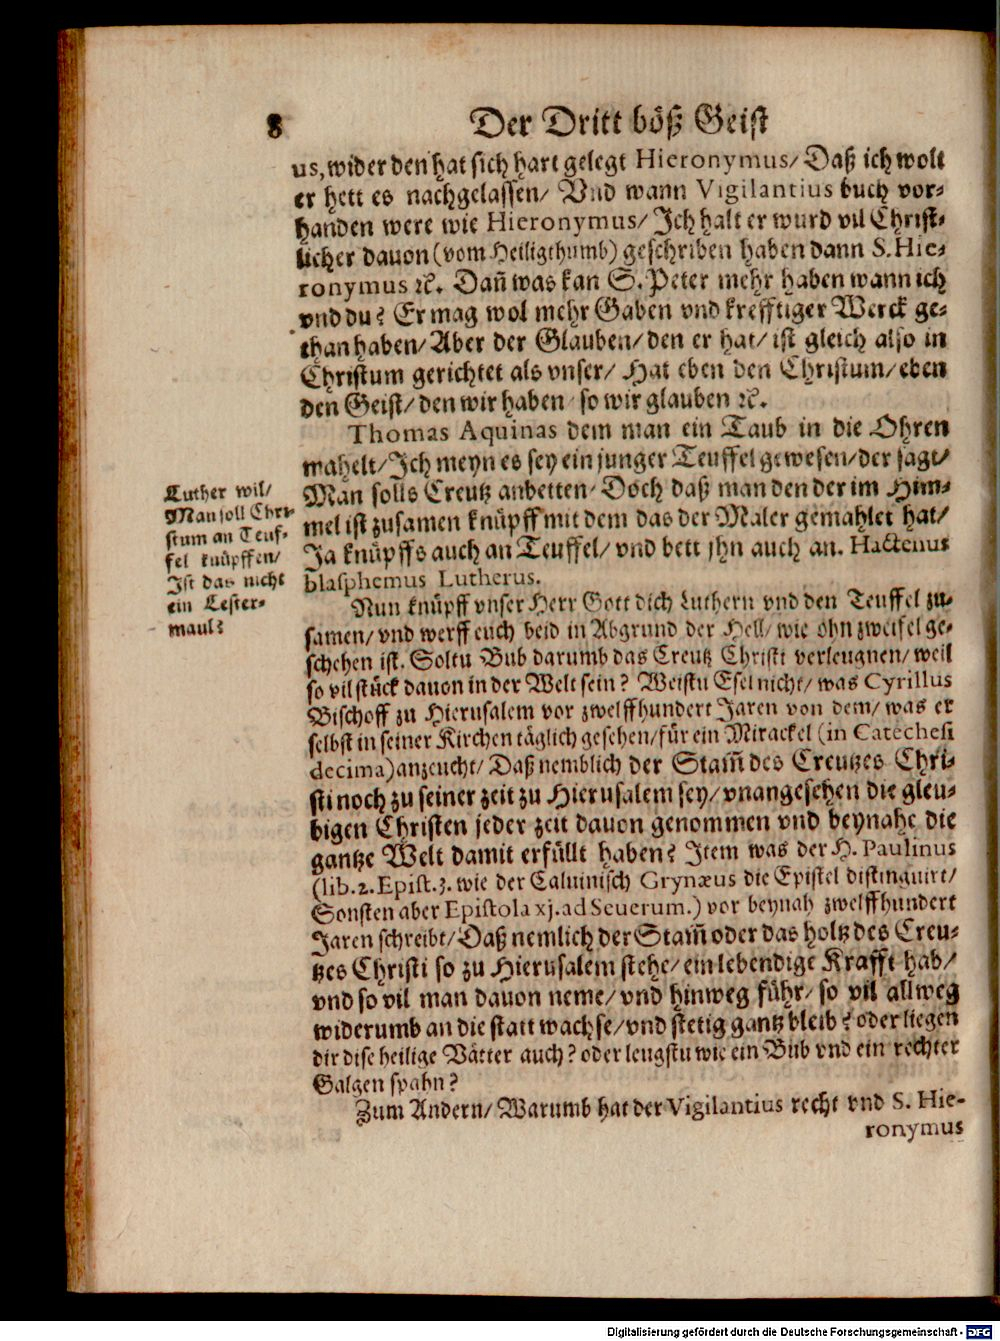 8 Der Dritt böß Geist
us, wider den hat sich hart gelegt Hieronymus/ Daß ich wolt
er hett es nachgelassen/ Vnd wann Vigilantius buch vor-
handen were wie Hieronymus/ Ich halt er wurd vil Christ-
licher dauon (vom Heiligthumb) geschriben haben dann S. Hie-
ronymus ꝛc. Dañ was kan S. Peter mehr haben wann ich
vnd du? Er mag wol mehr Gaben vnd krefftiger Werck ge-
than haben/ Aber der Glauben/ den er hat/ ist gleich also in
Christum gerichtet als vnser/ Hat eben den Christum/ eben
den Geist/ den wir haben so wir glauben ꝛc.
Thomas Aquinas dem man ein Taub in die Ohren
mahelt/ Ich meyn es sey ein junger Teuffel gewesen/ der sagt/
Man solls Creutz anbetten/ Doch daß man den der im Him-
mel ist zusamen knüpff mit dem das der Maler gemahlet hat/
Ja knüpffs auch an Teuffel/ vnd bett jhn auch an. Hactenus
blasphemus Lutherus.
Luther wil/
Man soll Chri-
stum an Teuf-
fel knüpffen/
Ist das nicht
ein Lester-
maul?
Nun knüpff vnser Herr Gott dich Luthern vnd den Teuffel zu-
samen/ vnd werff euch beid in Abgrund der Hell/ wie ohn zweifel ge-
schehen ist. Soltu Bub darumb das Creutz Christi verleugnen/ weil
so vil stück dauon in der Welt sein? Weistu Esel nicht/ was Cyrillus
Bischoff zu Hierusalem vor zwelffhundert Jaren von dem/ was er
selbst in seiner Kirchen täglich gesehen/ für ein Mirackel (in Catechesi
decima) anzeucht/ Daß nemblich der Stam̃ des Creutzes Chri-
sti noch zu seiner zeit zu Hierusalem sey/ vnangesehen die gleu-
bigen Christen jeder zeit dauon genommen vnd beynahe die
gantze Welt damit erfüllt haben? Item was der H. Paulinus
(lib. 2. Epist. 3. wie der Caluinisch Grynæus die Epistel distinguirt/
Sonsten aber Epistola xj. ad Seuerum.) vor beynah zwelffhundert
Jaren schreibt/ Daß nemlich der Stam̃ oder das holtz des Creu-
tzes Christi so zu Hierusalem stehe/ ein lebendige Krafft hab/
vnd so vil man dauon neme/ vnd hinweg führ/ so vil allweg
widerumb an die statt wachse/ vnd stetig gantz bleib? oder liegen
dir dise heilige Vätter auch? oder leugstu wie ein Bub vnd ein rechter
Galgen spahn?
Zum Andern/ Warumb hat der Vigilantius recht vnd S. Hie-
ronymus
Digitalisierung gefördert durch die Deutsche Forschungsgemeinschaft - DFG